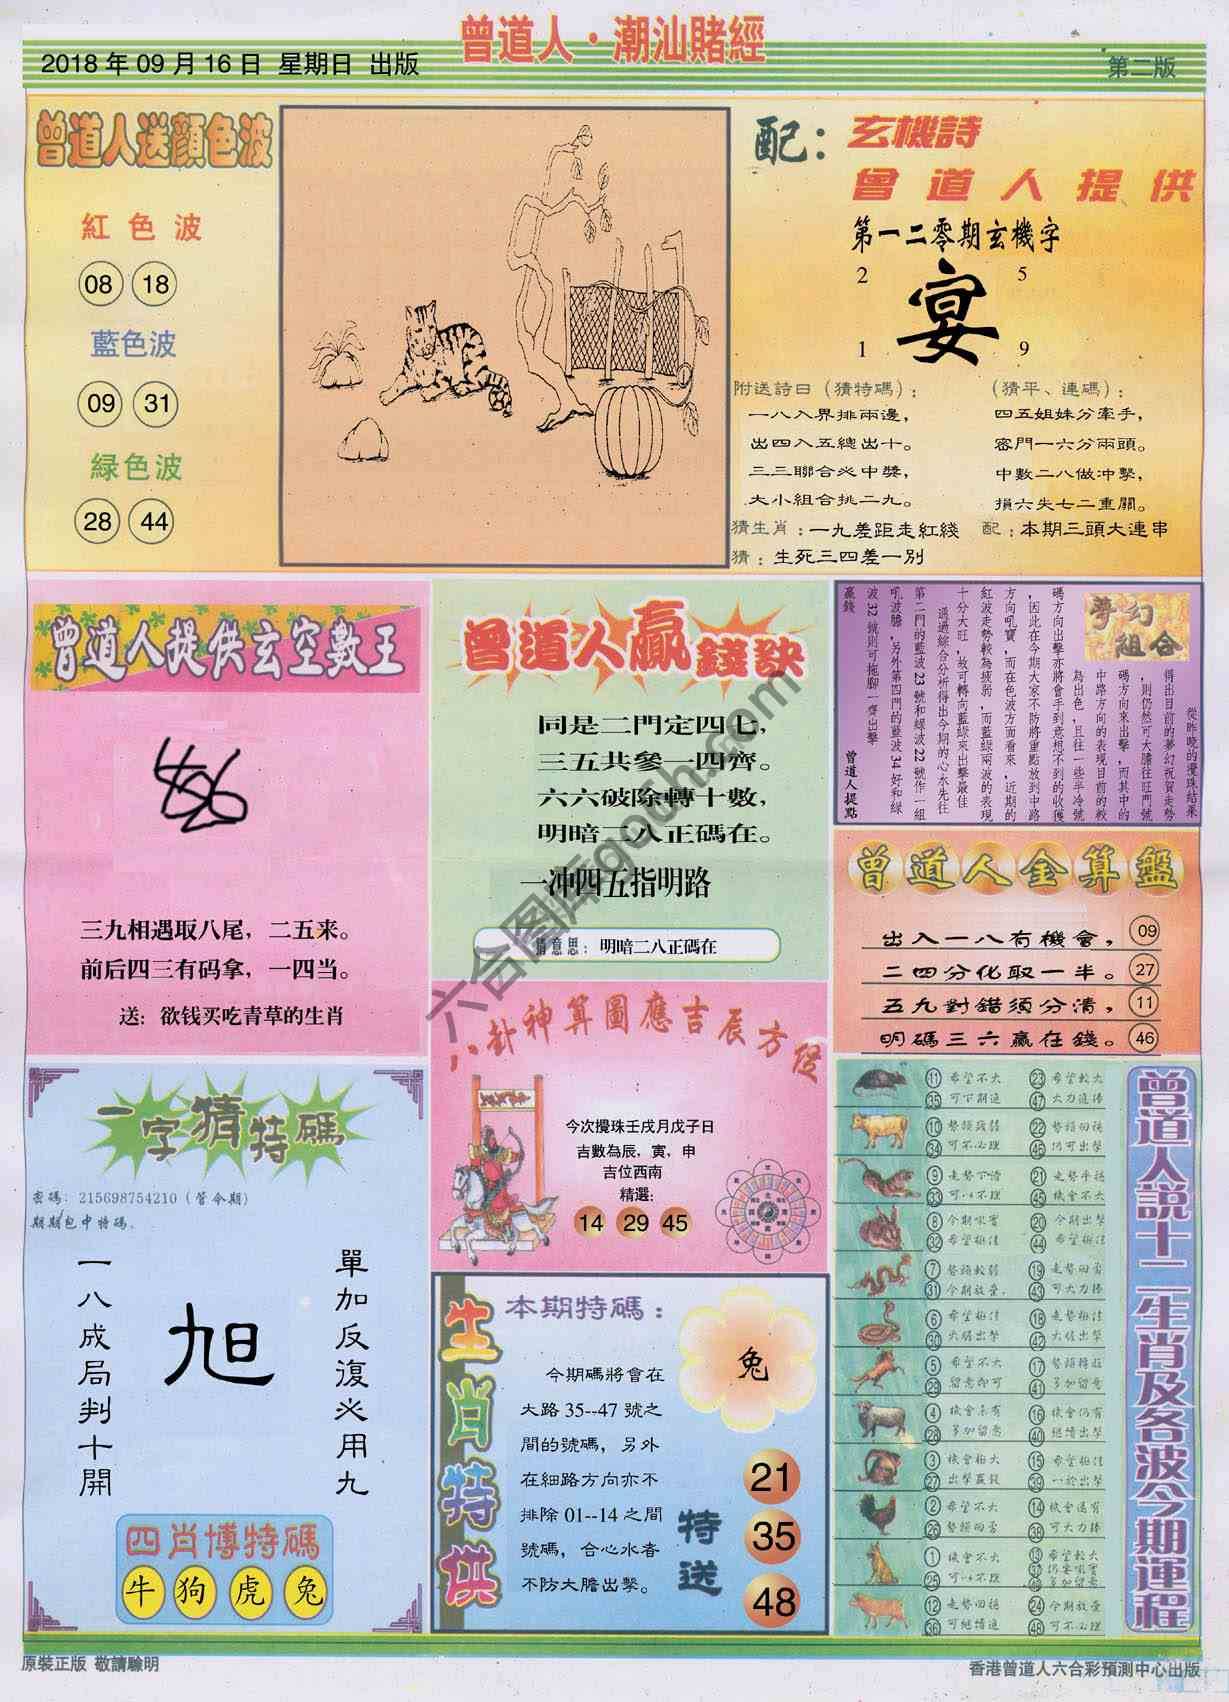 曾道人·潮汕賭經
2018年09月16日 星期日 出版
第二版
曾道人送顏色波
紅色波
08 18
藍色波
09 31
緑色波
28 44
配：玄機詩
曾道人提供
第一二零期玄機字
2 5
宴
1 9
附送詩曰（猜特碼）：
一八入界排兩邊，
出四入五總出十。
三三聯合必中獎，
大小組合挑二九。
（猜平、連碼）：
四五姐妹分牽手，
密門一六分兩頭。
中數二八做冲擊，
損六失七二重關。
猜生肖：一九差距走紅綫
配：本期三頭大連串
猜：生死三四差一別
曾道人提供玄空數王
三九相遇取八尾，二五来。
前后四三有码拿，一四当。
送：欲钱买吃青草的生肖
曾道人贏錢訣
同是二門定四七，
三五共參一四齊。
六六破除轉十數，
明暗二八正碼在。
一冲四五指明路
猜意思：明暗二八正碼在
夢幻組合
從昨晚的攪珠結果
得出目前的夢幻祝賀走勢
，則仍然可大膽往旺門號
碼方向來出擊，而其中的
中路方向的表現目前的較
為出色，且往一些半冷號
碼方向出擊亦將會手到意想不到的收獲
，因此在今期大家不防將重點放到中路
方向吼寶，而在色波方面看來，近期的
紅波走勢較為疲弱，而藍緑兩波的表現
十分大旺，故可轉向藍緑來出擊最佳
通過綜合分析得出今期的心水先往
第二門的藍波23號和緑波22號作一組
吼波膽，另外第四門的藍波34好和緑
波32號則可拖腳一齊出擊
贏錢
曾道人提點
曾道人金算盤
出入一八有機會，09
二四分化取一半。27
五九對錯須分清，11
明碼三六贏在錢。46
八卦神算圖應吉辰方位
今次攪珠壬戌月戊子日
吉數為辰，寅，申
吉位西南
精選：
14 29 45
一字猜特碼
密碼：215698754210（管令期）
期期包中特碼.
一八成局判十開
旭
單加反復必用九
四肖博特碼
牛 狗 虎 兔
生肖特供
本期特碼：
兔
今期碼將會在
大路35--47號之
間的號碼，另外
在細路方向亦不
排除01--14之間
號碼，合心水者
不防大膽出擊。
特送
21
35
48
曾道人説十二生肖及各波今期運程
11 希望不大 23 希望較大
35 可下期追 47 大力追捧
10 勢頭疲弱 22 勢頭回穩
34 可不必理 46 仍可出擊
9 走勢下滑 21 走勢平穩
33 可以不理 45 機會不大
8 今期吼實 20 今期出擊
32 希望極佳 44 希望極佳
7 勢頭較弱 19 走勢回勇
31 今期放棄. 43 可大力捧
6 希望極佳 18 走勢極佳
30 大膽出擊 42 大膽出擊
5 希望不大 17 勢頭轉旺
29 留意即可 41 多加留意
4 機會未有 16 機會仍有
28 多加留意 40 繼續出擊
3 機會極大 15 希望極佳
27 出擊贏錢 39 一於出擊
2 希望不大 14 機會還有
26 勢頭回勇 38 可大力捧
1 機會不大 13 希望較大
25 可以不理
12 走勢回穩 24 今期放棄
36 可繼續追 48 可不必理
原裝正版 敬請驗明
香港曾道人六合彩預測中心出版
六合图库gouch.com